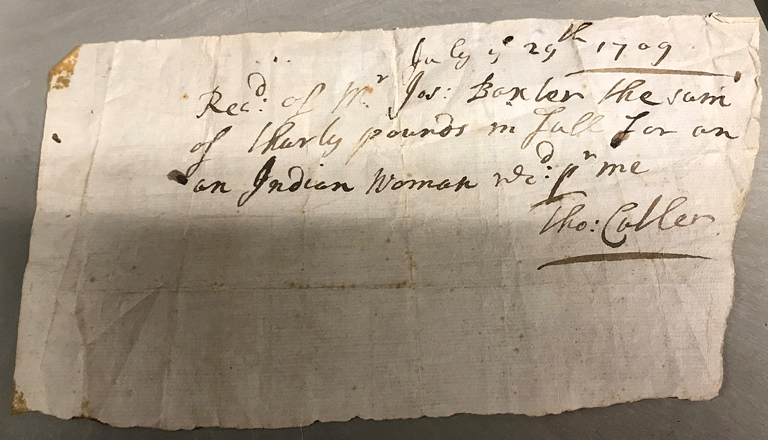 July ye 29th 1709
Recd: of Mr Jos: Baxter the sum
of tharty pounds in full for an
an Indian Woman recd: pr me
Tho: Cutler